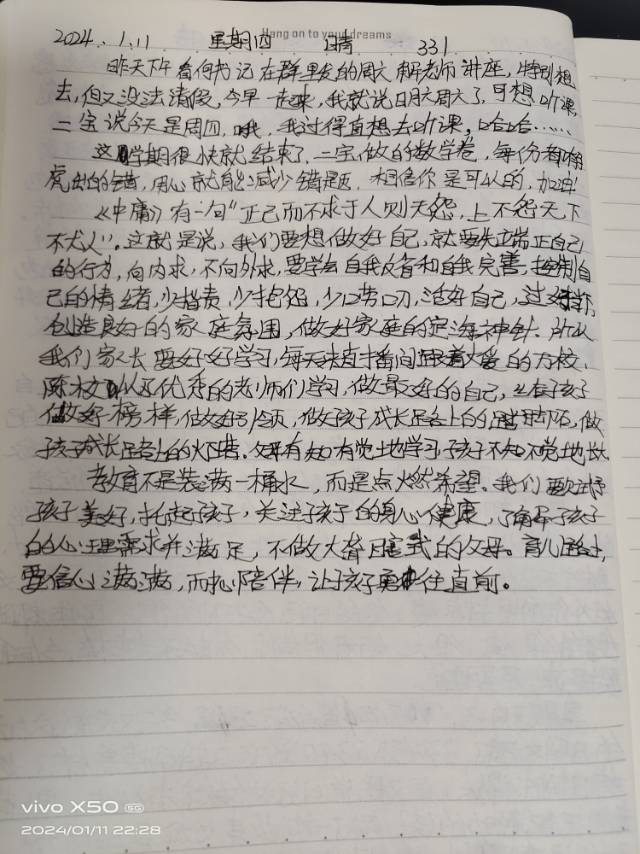 Hang on to your dreams
2024.1.11 星期四 晴 331
昨天下午看何书记在群里发的周文解老师讲座,特别想
去,但又没法请假,今早一起来,我就说明天周六了,可想听课,
二宝说今天是周四,哦,我过得直想去听课,哈哈……
这学期很快就结束了,二宝做的数学卷,每份都有
出的错,用心就能减少错题,相信你是可以的,加油!
《中庸》有一句“正己而不求于人则无怨,上不怨天,下
不尤人”。这就是说,我们要想做好自己,就要先端正自己
的行为,向内求,不向外求,要学会自我反省和自我完善,控制自
己的情绪,少指责,少抱怨,少唠叨,活好自己,过好
创造良好的家庭氛围,做好家庭的定海神针。所以
我们家长要好好学习,每天来直播间跟着火爱的方校、
陈校以及优秀的老师们学习,做最好的自己,给孩子
做好榜样,做好引领,做孩子成长路上的,做
孩子成长路上的灯塔。父母有知有觉地学习,孩子不知不觉地成长。
教育不是装满一桶水,而是点燃希望。我们要
孩子美好,托起孩子,关注孩子的身心健康,了解孩子
的心理需求并满足,不做大聋式的父母。育儿路上,
要信心满满,而心陪伴,让孩子勇往直前。
vivo X50 5G
2024/01/11 22:28